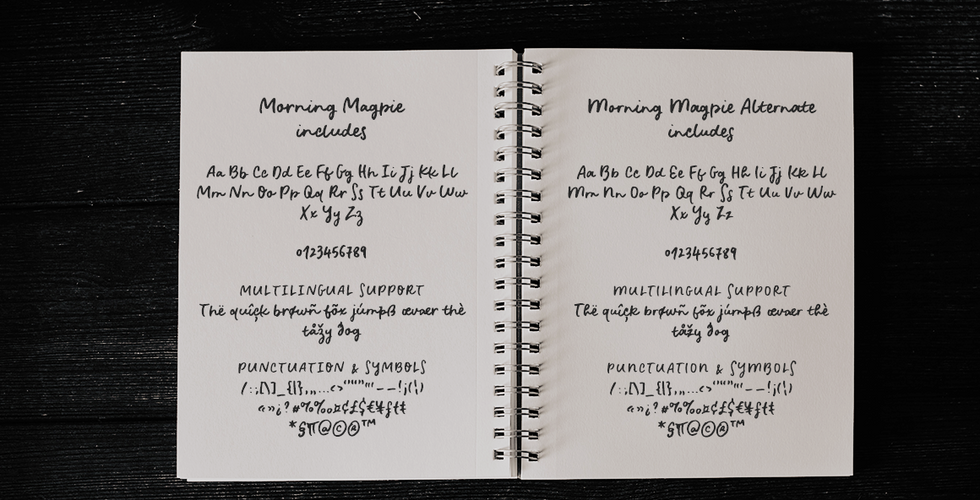 Morning Magpie
includes
Aa Bb Cc Dd Ee Ff Gg Hh Ii Jj Kk Ll
Mm Nn Oo Pp Qq Rr Ss Tt Uu Vv Ww
Xx Yy Zz
0123456789
MULTILINGUAL SUPPORT
Thë quîçk brøwñ fõx júmpß œvær thè
tåžy dog
PUNCTUATION & SYMBOLS
*§¶@©®™
Morning Magpie Alternate
includes
Aa Bb Cc Dd Ee Ff Gg Hh Ii Jj Kk Ll
Mm Nn Oo Pp Qq Rr Ss Tt Uu Vv Ww
Xx Yy Zz
0123456789
MULTILINGUAL SUPPORT
Thë quîçk brøwñ fõx júmpß œvær thè
tåžy dog
PUNCTUATION & SYMBOLS
*§¶@©®™